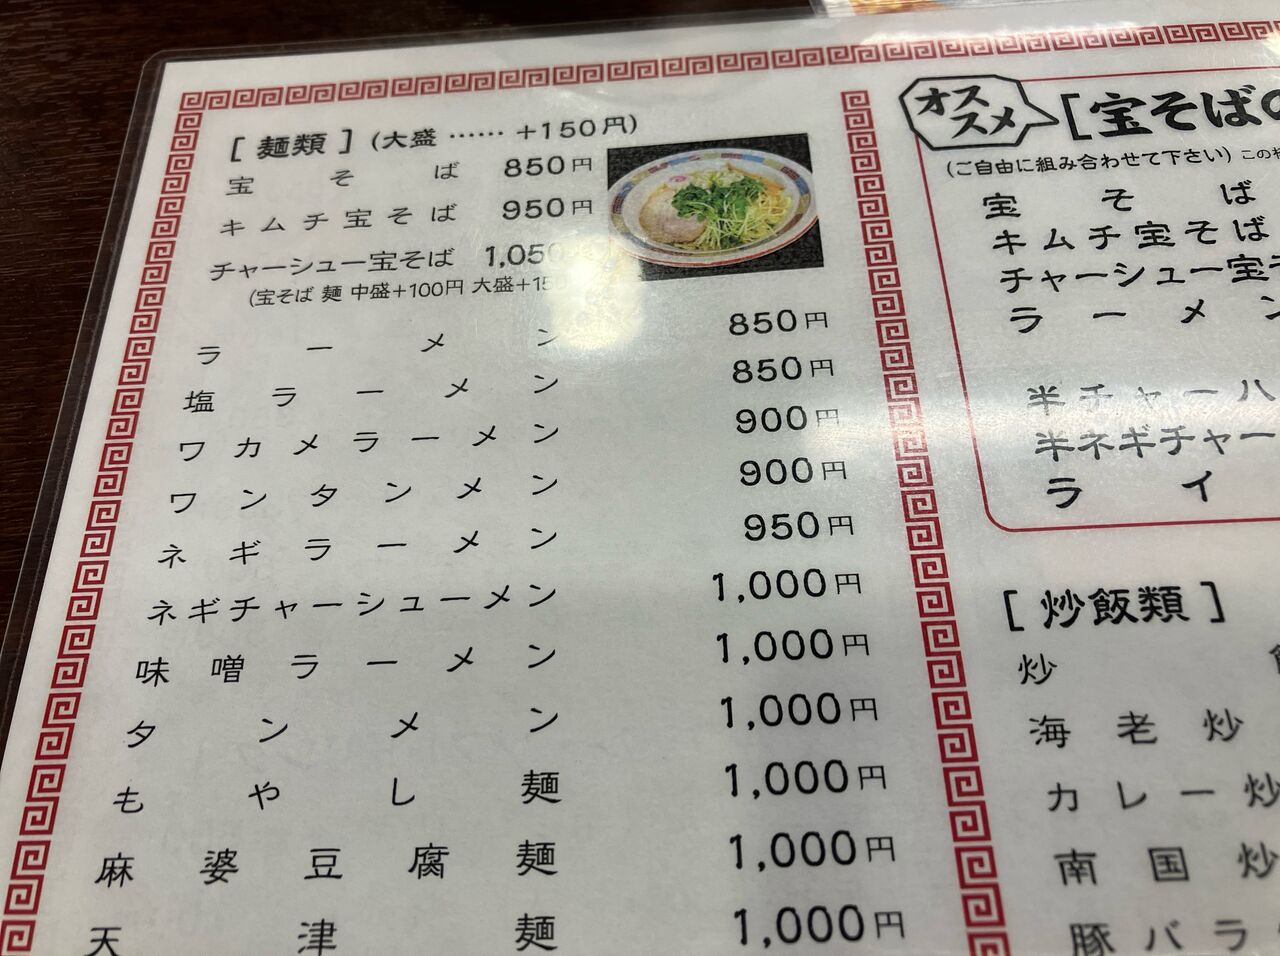 [ 麺類 ] (大盛 …… +150円)
宝そば 850円
キムチ宝そば 950円
チャーシュー宝そば 1,050
(宝そば 麺 中盛+100円 大盛+15
ラーメン 850円
塩ラーメン 850円
ワカメラーメン 900円
ワンタンメン 900円
ネギラーメン 950円
ネギチャーシューメン 1,000円
味噌ラーメン 1,000円
タンメン 1,000円
もやし麺 1,000円
麻婆豆腐麺 1,000円
天津麺 1,000円
オススメ
[宝そばの
(ご自由に組み合わせて下さい) この
宝そば
キムチ宝そば
チャーシュー宝そ
ラーメン
半チャーハ
半ネギチャー
ライ
[ 炒飯類 ]
炒
海老炒
カレー炒
南国炒
豚バラ